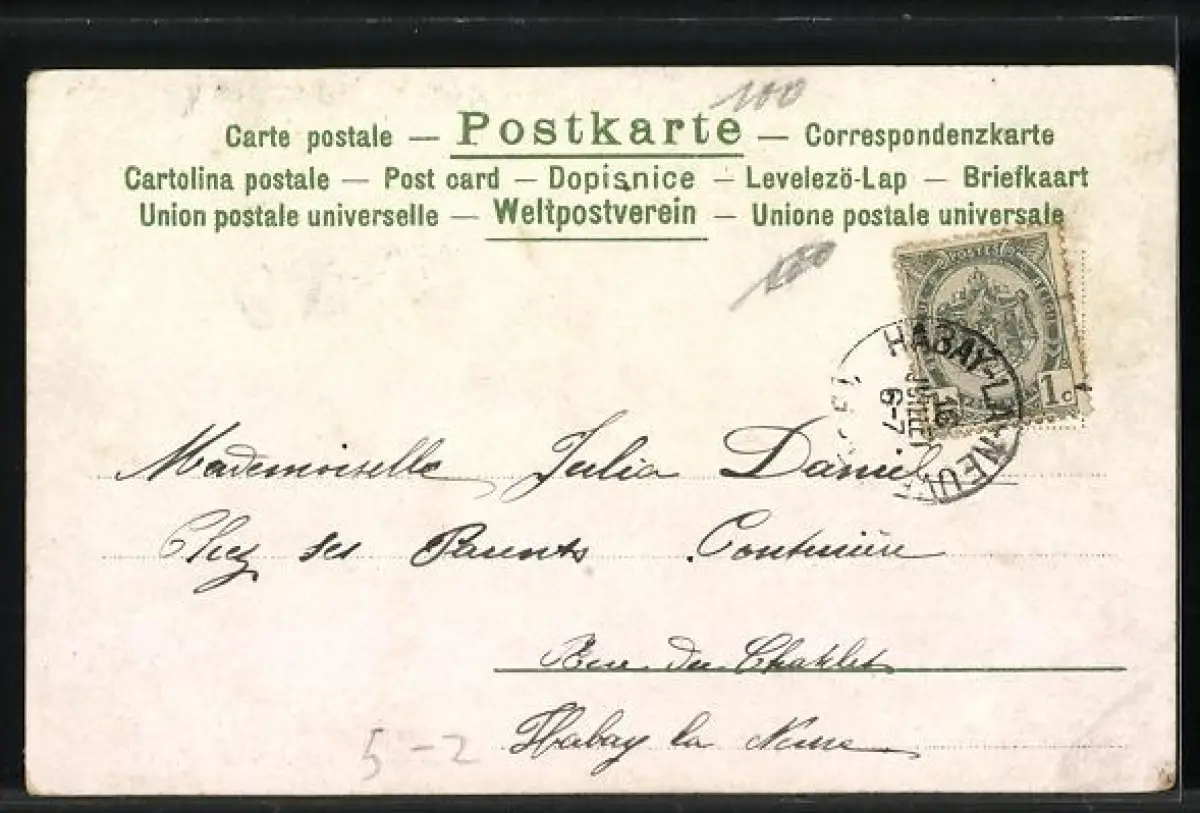 100
Carte postale — Postkarte — Correspondenzkarte
Cartolina postale — Post card — Dopisnice — Levelezö-Lap — Briefkaart
Union postale universelle — Weltpostverein — Unione postale universale
100
POSTES
1c
HABAY-LA-NEUV
16
JUILLET
6-7
Mademoiselle Julia Daniel
Chez ses Parents Couturière
Rue du Chatelet
Habay la Neuve
5-2